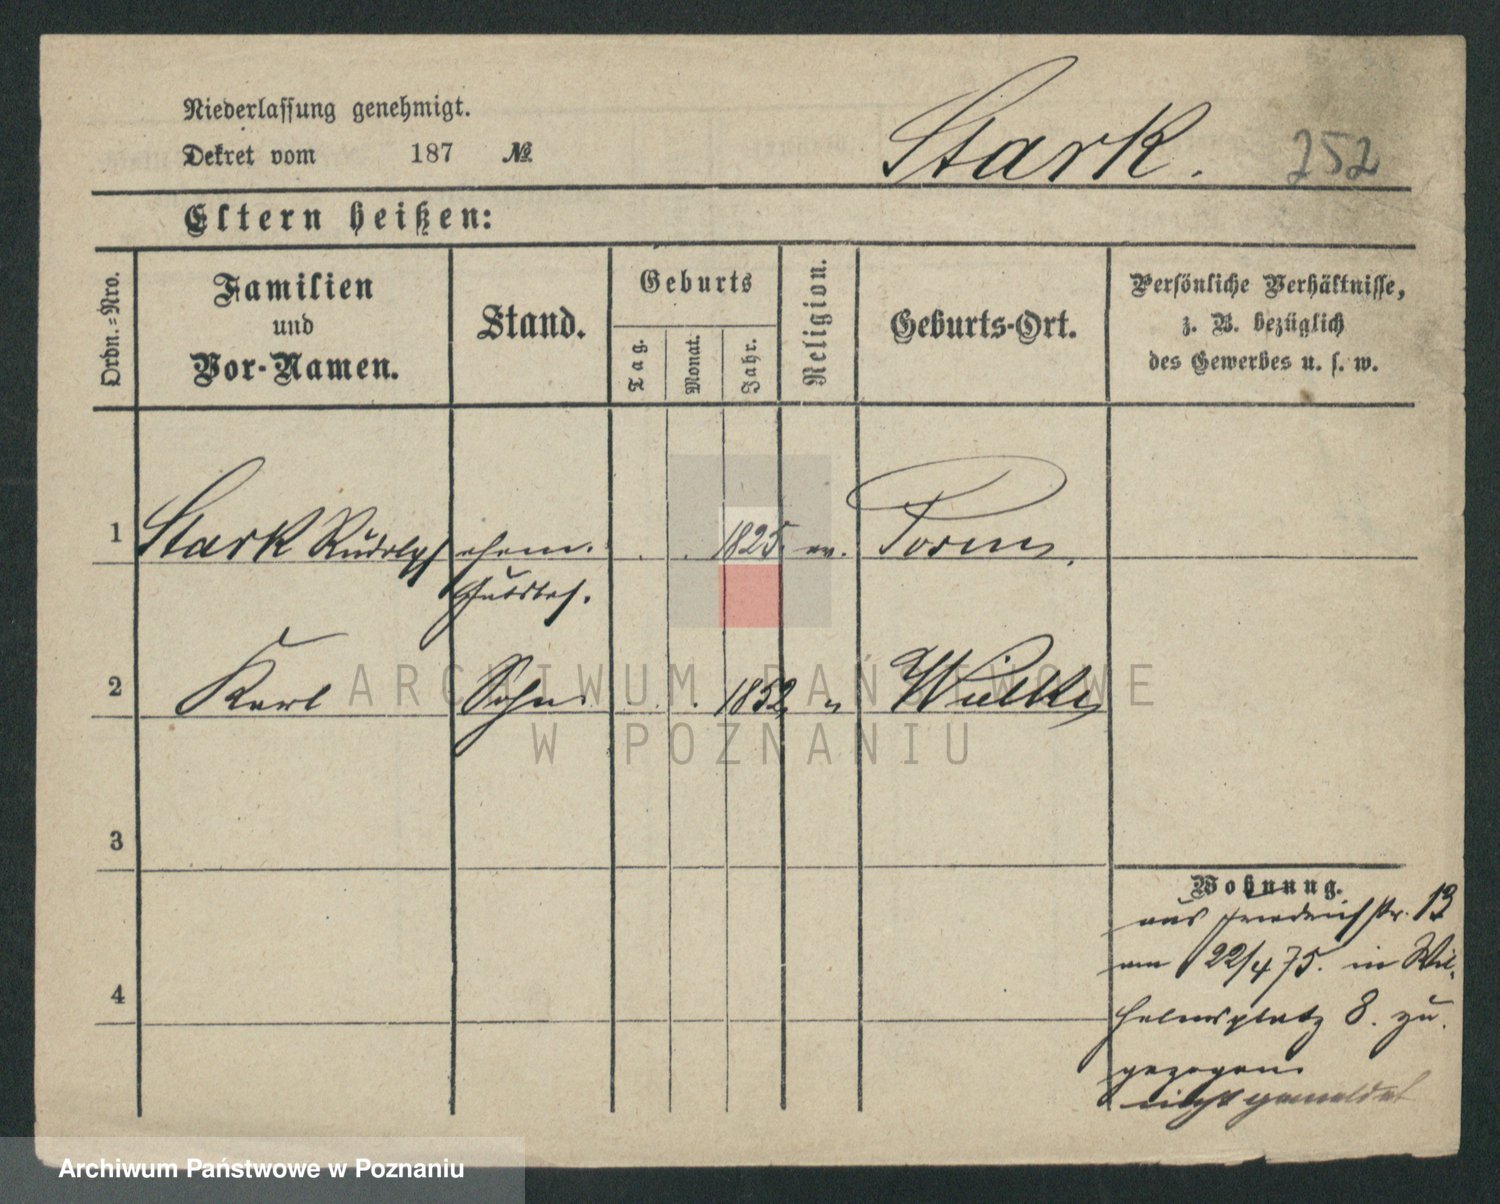 Niederlassung genehmigt.
Dekret vom 187 №
Stark. 252
Eltern heißen:
Ordn.=Nro.
Familien
und
Vor-Namen.
Stand.
Geburts
Tag.
Monat.
Jahr.
Religion.
Geburts-Ort.
Persönliche Verhältnisse,
z. B. bezüglich
des Gewerbes u. s. w.
1 Stark Rudolph ehem. . . 1825. ev. Posen.
Gutsbes.
2 Karl Sohn . . 1852 "
3
4
Wohnung.
aus Friedrichstr. 13
am 22/4 75. in Wil-
helmsplatz 8. zu-
gezogen
nicht gemeldet
ARCHIWUM PAŃSTWOWE
W POZNANIU
Archiwum Państwowe w Poznaniu